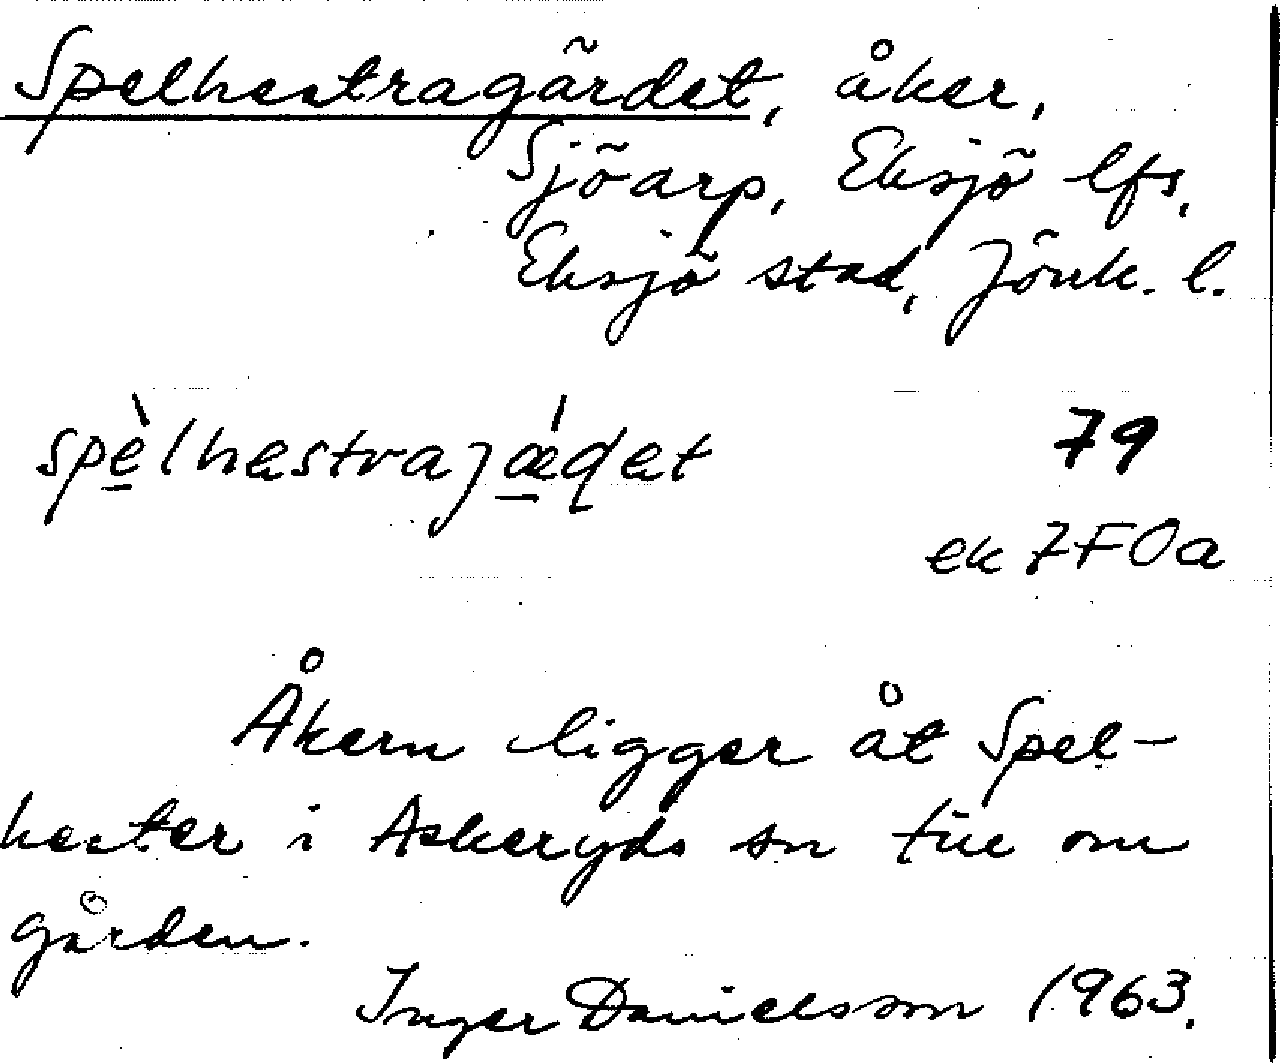 Spelhestragärdet, åker,
Sjöarp, Eksjö lfs,
Eksjö stad, Jönk. l.
spèlhestrajǽḍet 79
ek 7F0a
Åkern ligger åt Spel-
hester i Askeryds sn öster om
gården.
Inger Danielsson 1963.